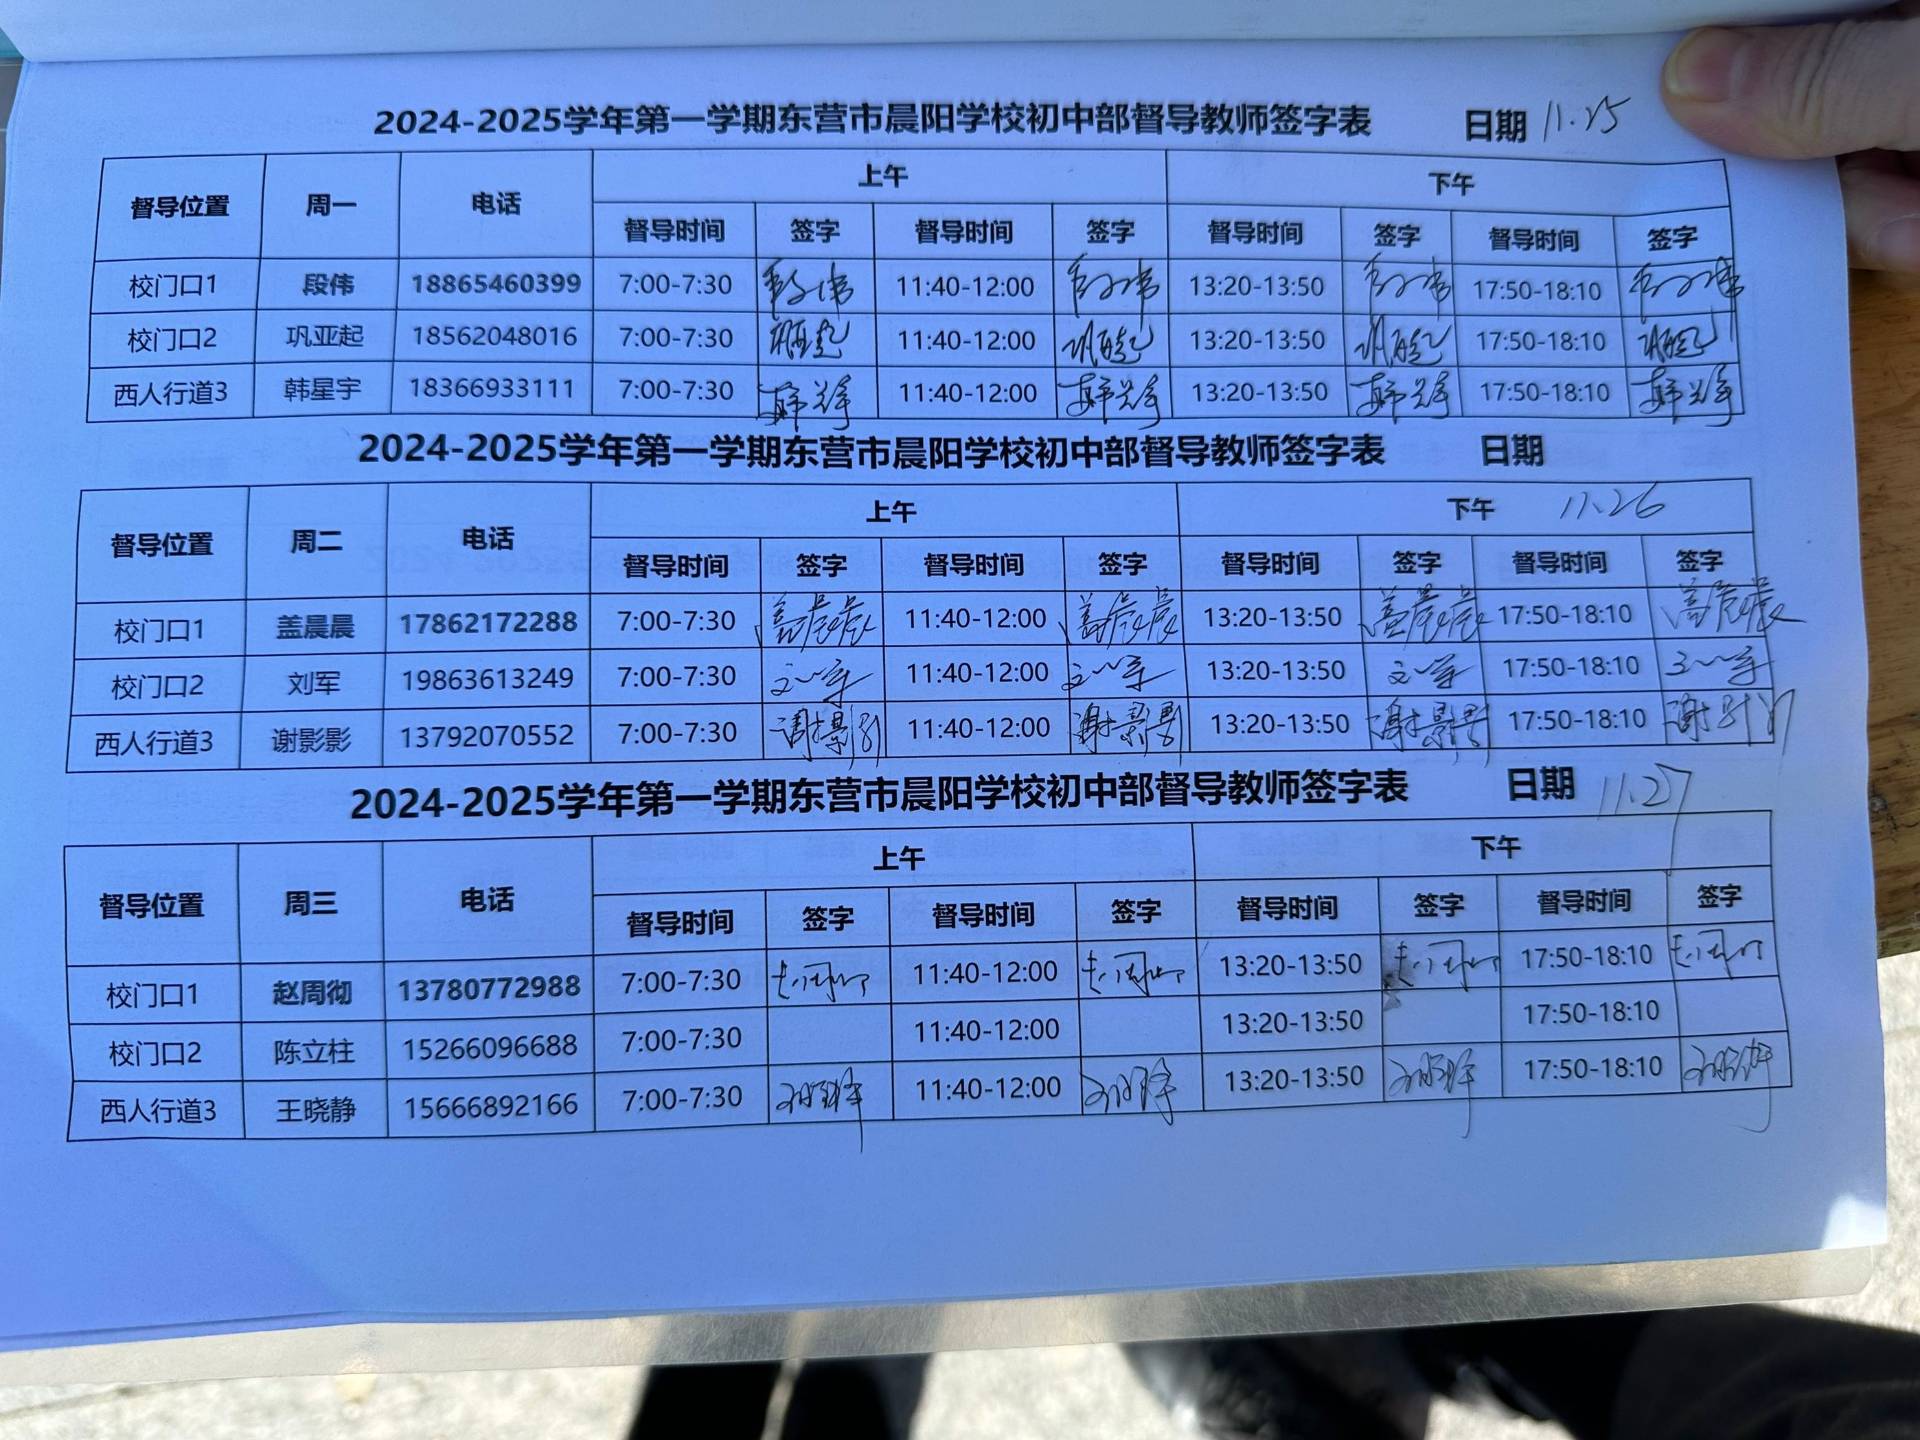 2024-2025学年第一学期东营市晨阳学校初中部督导教师签字表 日期 11.25
督导位置 周一 电话 上午 下午
督导时间 签字 督导时间 签字 督导时间 签字 督导时间 签字
校门口1 段伟 18865460399 7:00-7:30 段伟 11:40-12:00 段伟 13:20-13:50 段伟 17:50-18:10 段伟
校门口2 巩亚起 18562048016 7:00-7:30 巩亚起 11:40-12:00 巩亚起 13:20-13:50 巩亚起 17:50-18:10 巩亚起
西人行道3 韩星宇 18366933111 7:00-7:30 韩星宇 11:40-12:00 韩星宇 13:20-13:50 韩星宇 17:50-18:10 韩星宇
2024-2025学年第一学期东营市晨阳学校初中部督导教师签字表 日期
督导位置 周二 电话 上午 下午 11.26
督导时间 签字 督导时间 签字 督导时间 签字 督导时间 签字
校门口1 盖晨晨 17862172288 7:00-7:30 盖晨晨 11:40-12:00 盖晨晨 13:20-13:50 盖晨晨 17:50-18:10 盖晨晨
校门口2 刘军 19863613249 7:00-7:30 刘军 11:40-12:00 刘军 13:20-13:50 刘军 17:50-18:10 刘军
西人行道3 谢影影 13792070552 7:00-7:30 谢影影 11:40-12:00 谢影影 13:20-13:50 谢影影 17:50-18:10 谢影影
2024-2025学年第一学期东营市晨阳学校初中部督导教师签字表 日期 11.27
督导位置 周三 电话 上午 下午
督导时间 签字 督导时间 签字 督导时间 签字 督导时间 签字
校门口1 赵周彻 13780772988 7:00-7:30 赵周彻 11:40-12:00 赵周彻 13:20-13:50 赵周彻 17:50-18:10 赵周彻
校门口2 陈立柱 15266096688 7:00-7:30 11:40-12:00 13:20-13:50 17:50-18:10
西人行道3 王晓静 15666892166 7:00-7:30 11:40-12:00 13:20-13:50 17:50-18:10